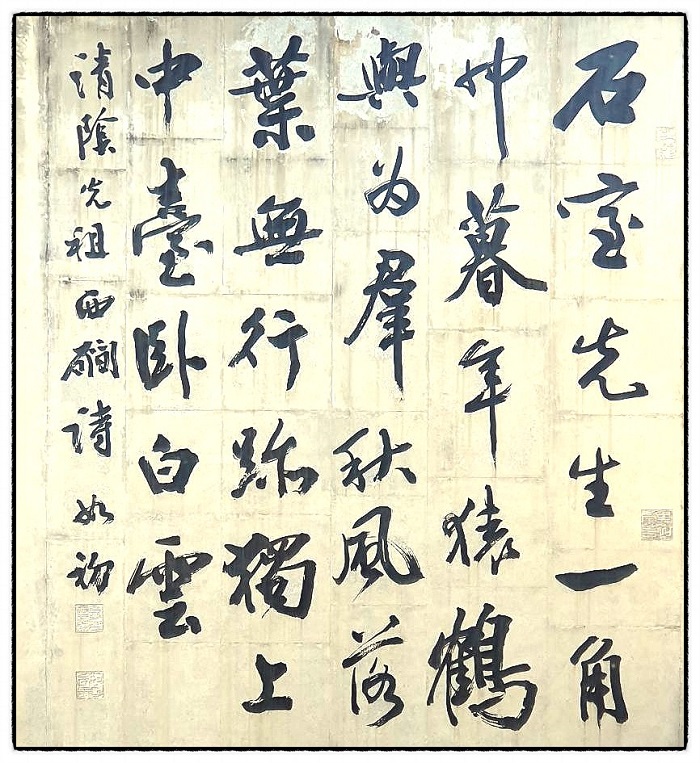 石室先生一角
巾暮年猿鶴
與为羣秋風落
葉無行跡獨上
中臺臥白雲
清陰先祖西磵詩 如初